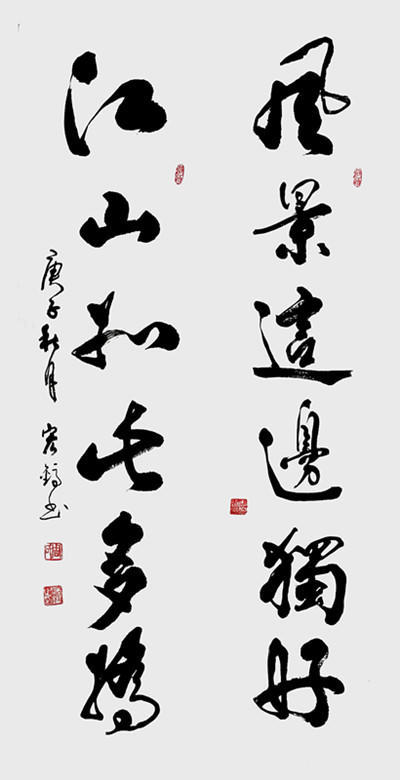 風景這邊獨好
江山如此多嬌
庚子秋月 容鎬书